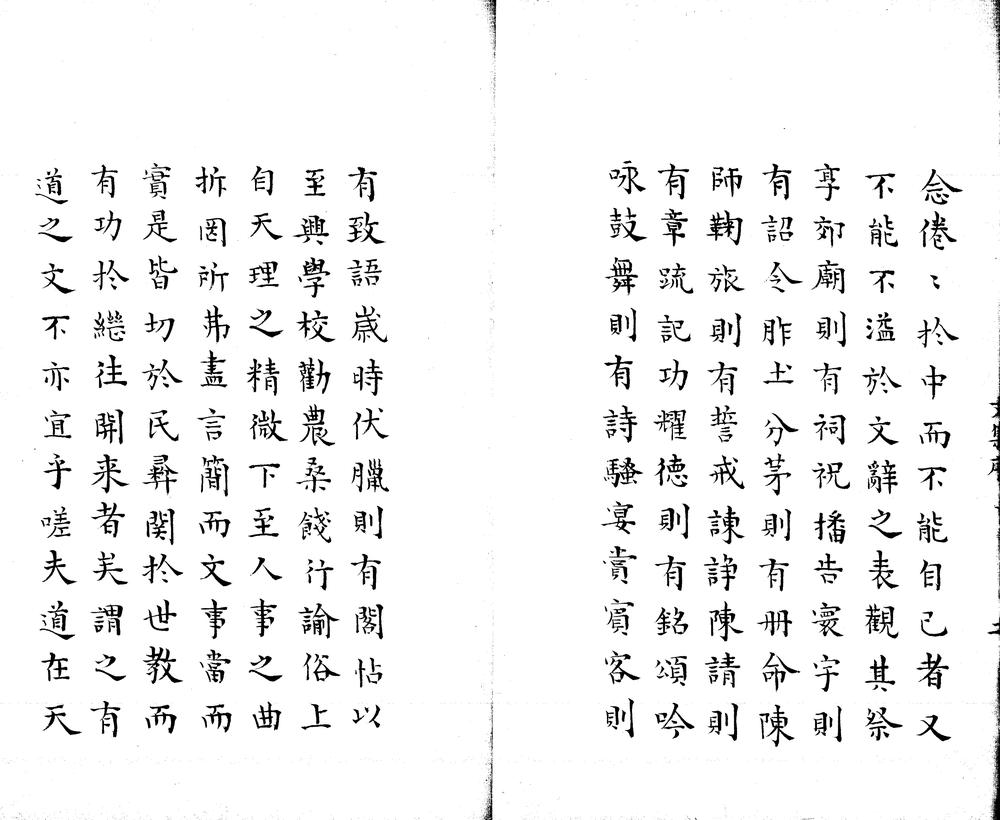 念倦〻於中而不能自已者又
不能不溢於文辭之表觀其祭
享郊廟則有祠祝播告寰宇則
有詔令胙土分茅則有冊命陳
師鞠旅則有誓戒諫諍陳請則
有章疏記功耀德則有銘頌吟
咏鼓舞則有詩騷宴賞賓客則
有致語歲時伏臘則有閣帖以
至興學校勸農桑餞行諭俗上
自天理之精微下至人事之曲
折罔所弗盡言簡而文事當而
實是皆切於民彛関於世教而
有功於繼往開来者矣謂之有
道之文不亦宜乎嗟夫道在天